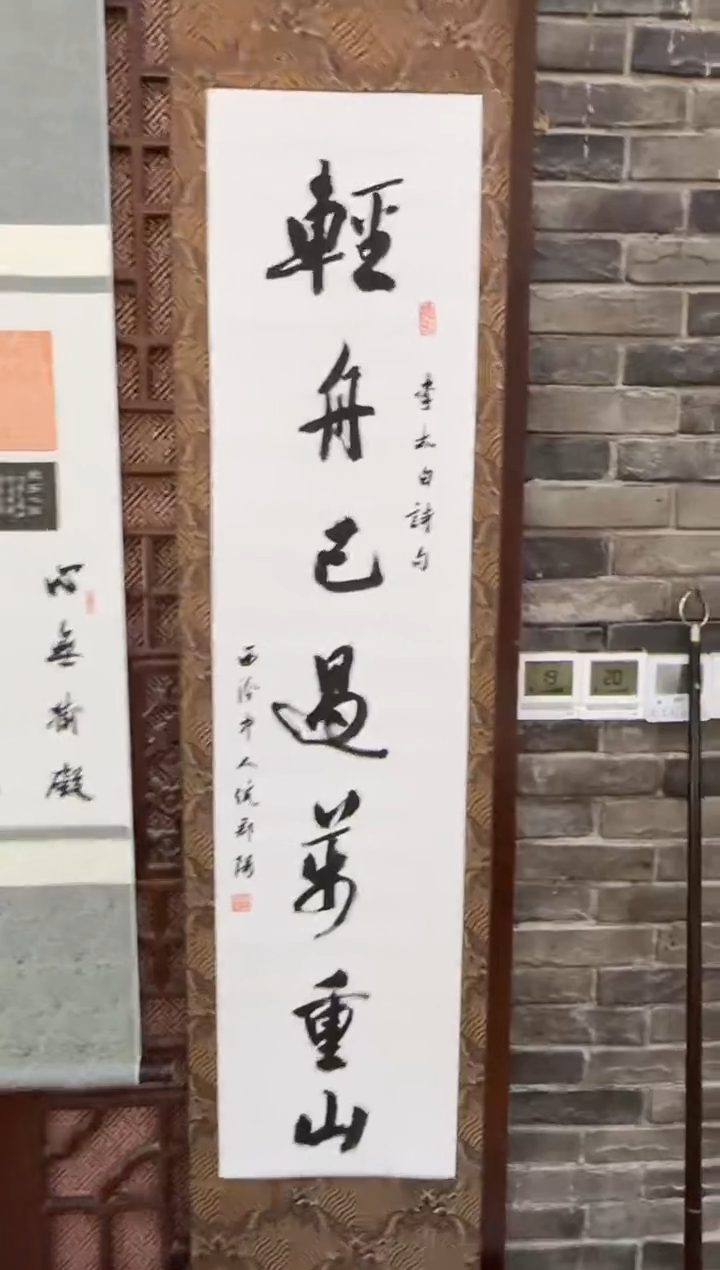 輕舟已過萬重山
李太白詩句
西泠中人倪郡陽
心無掛礙
19
20